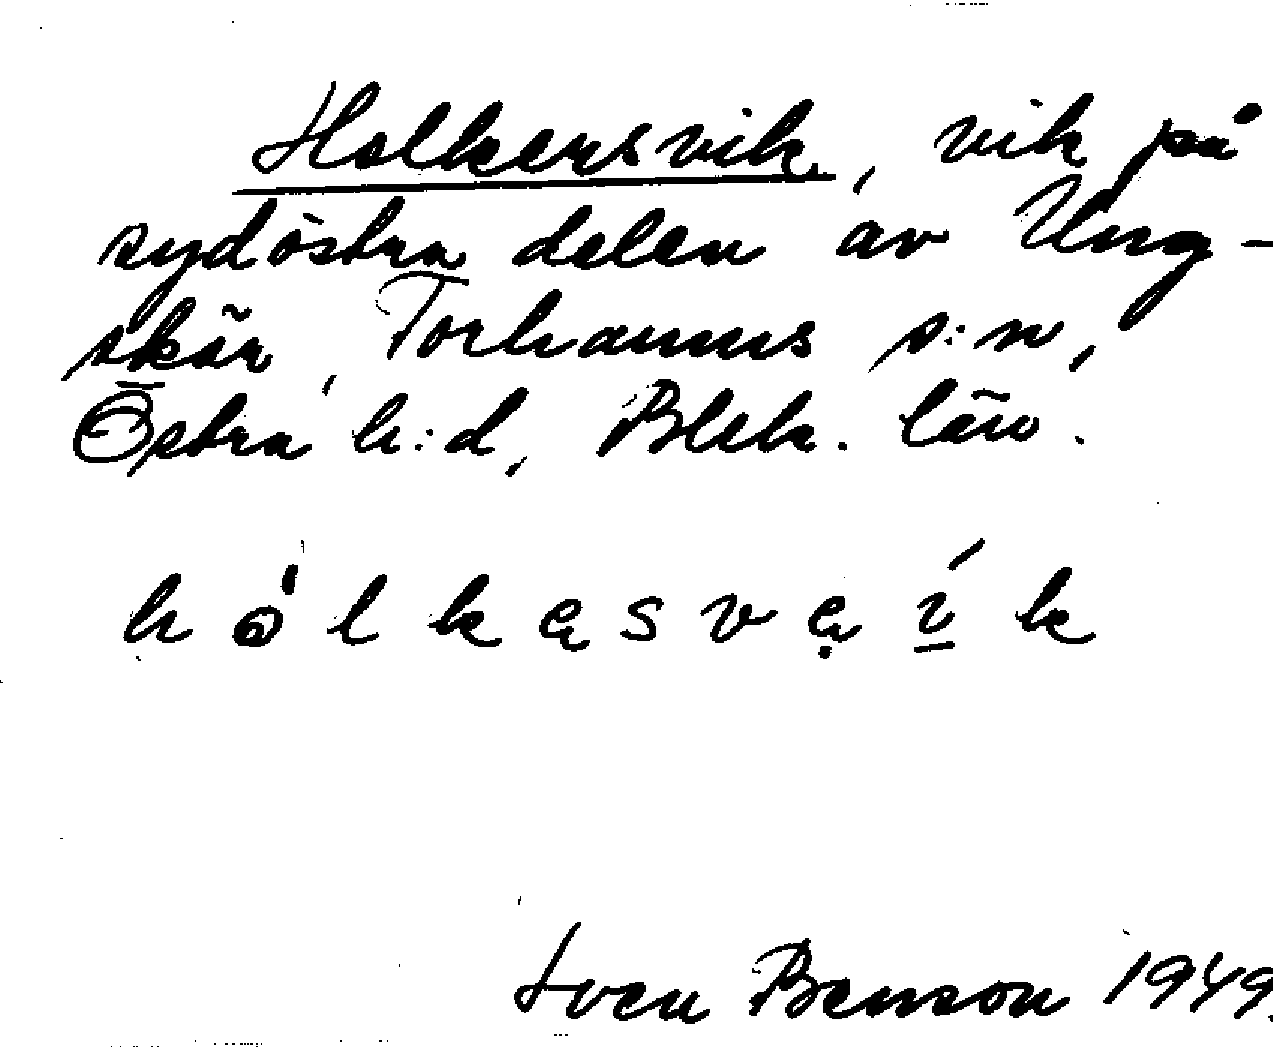 Holkersvik, vik på
sydöstra delen av Ung-
skär, Torhamns s:n,
Östra h:d, Blek. län.
Sven Benson 1949.